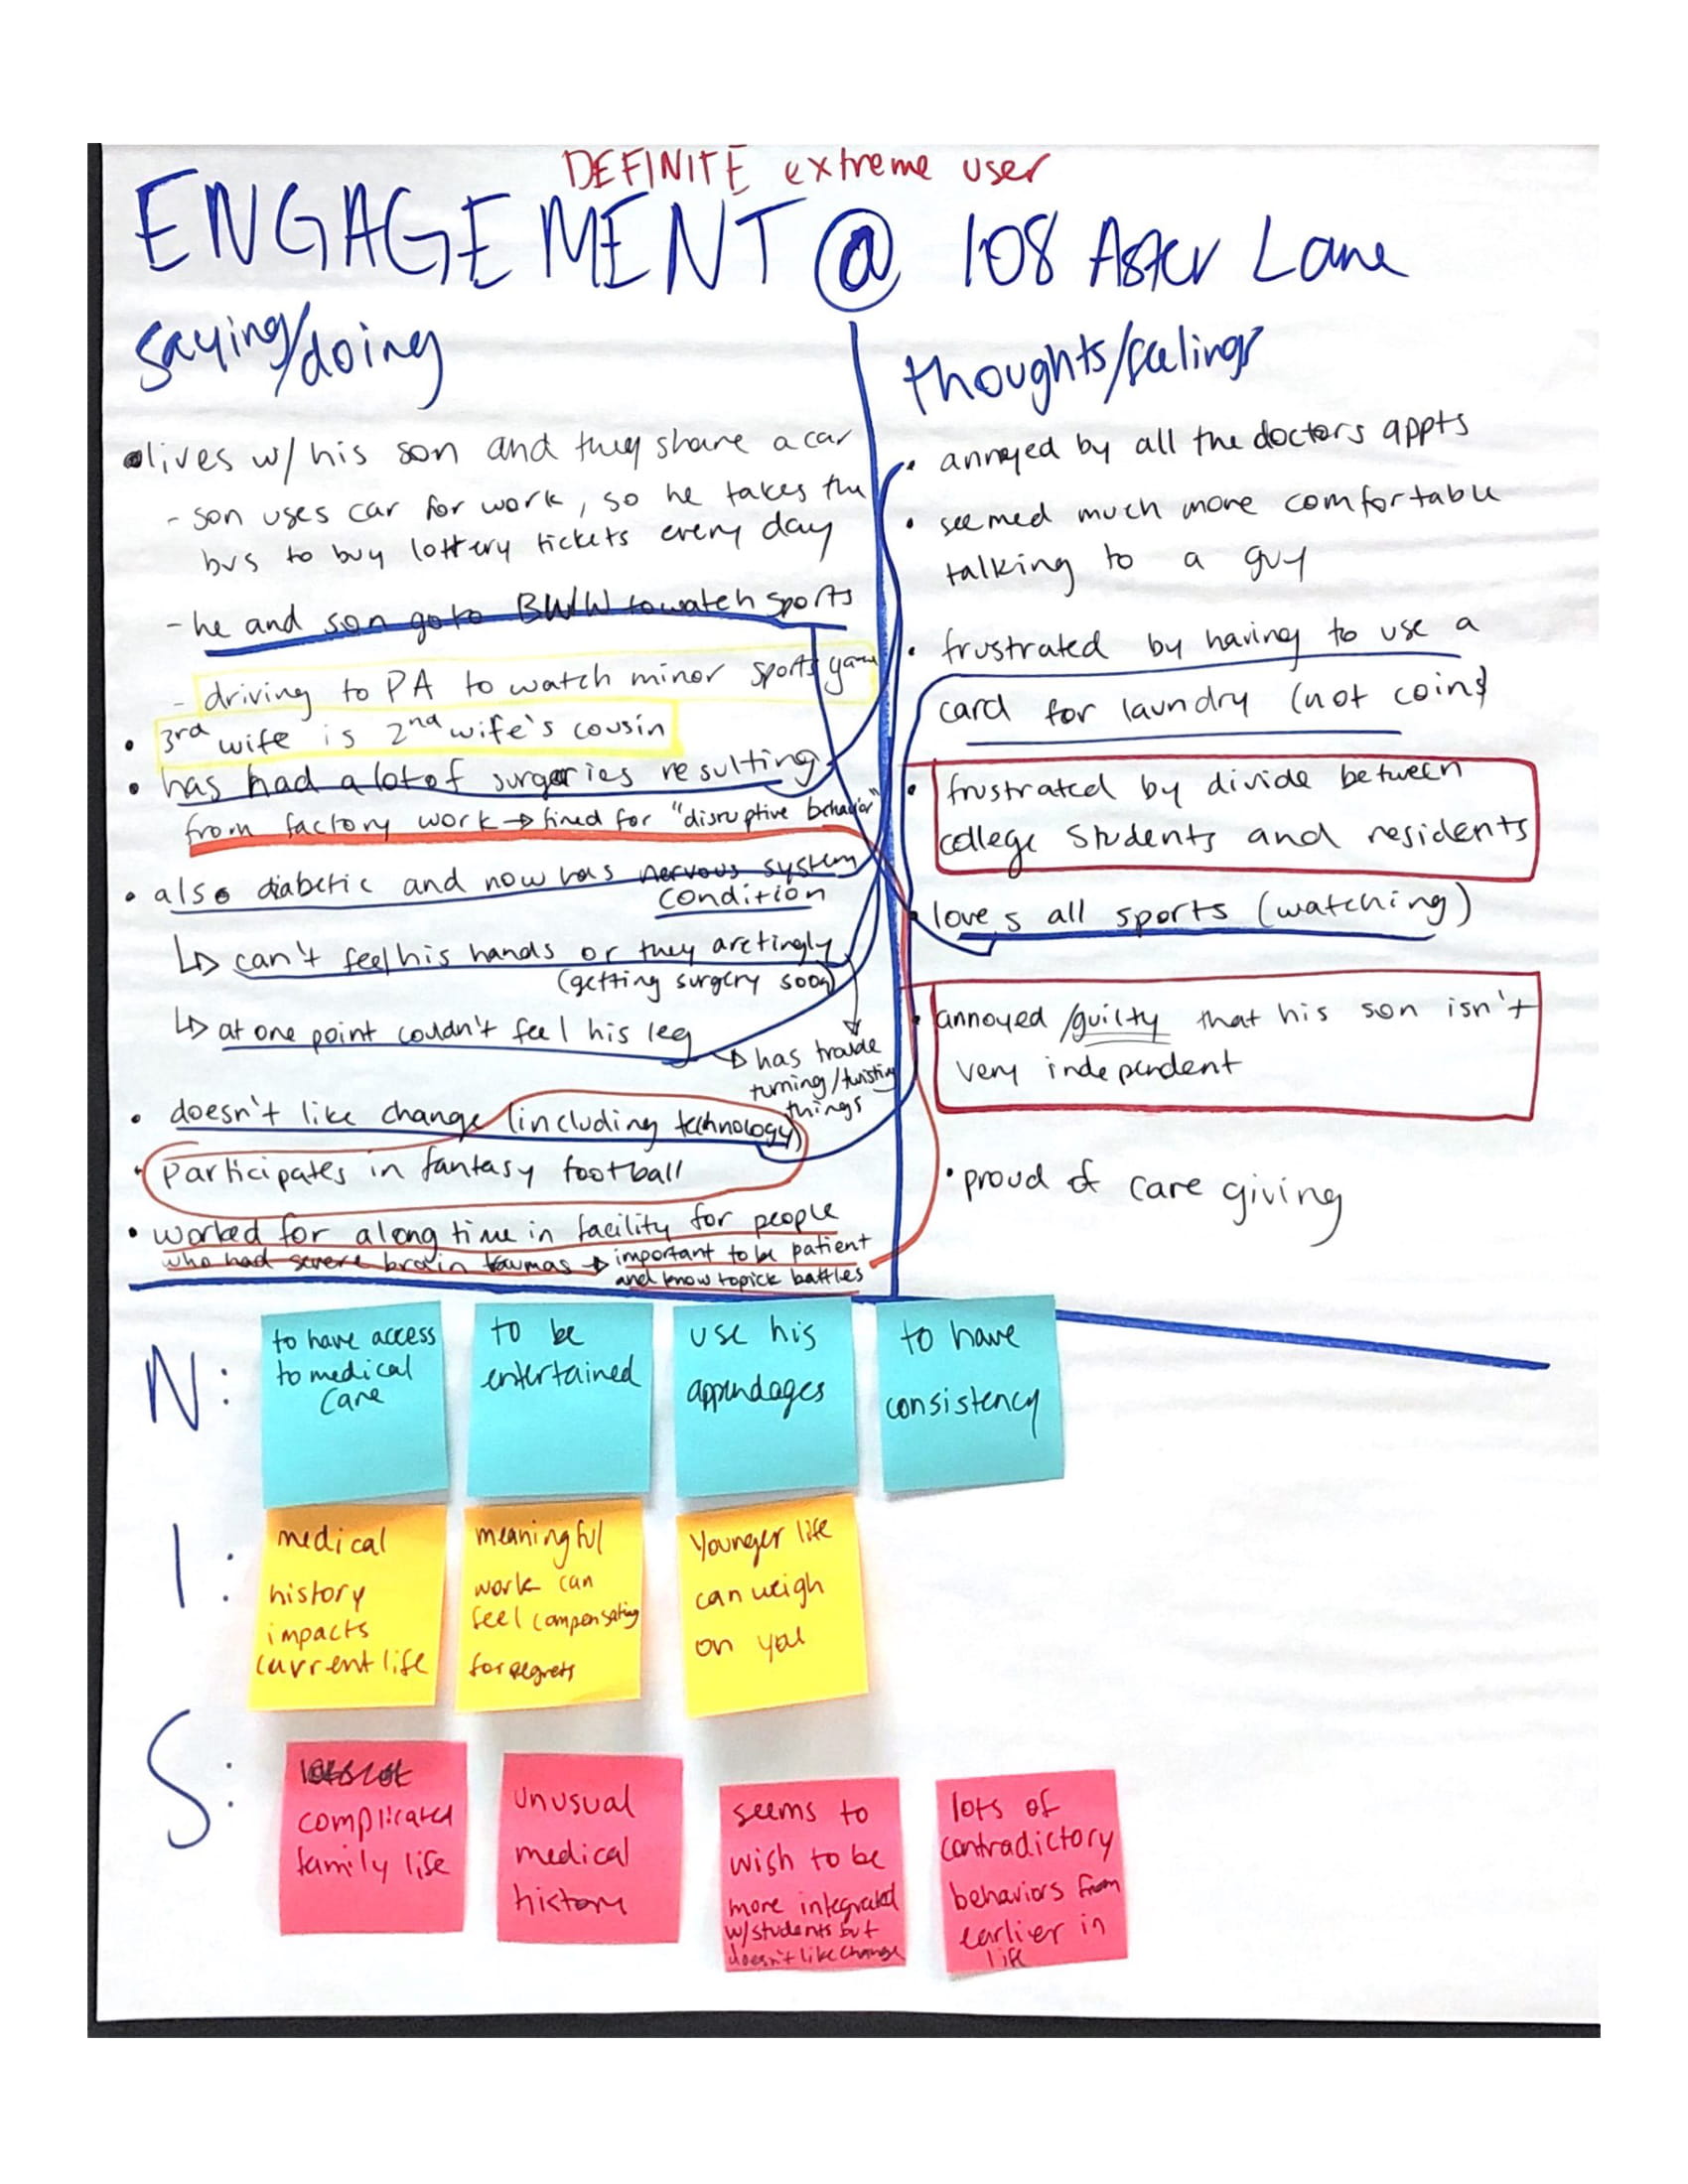 DEFINITE extreme user
ENGAGEMENT @ 108 Aster Lane
saying/doing
• lives w/ his son and they share a car
- son uses car for work, so he takes the
bus to buy lottery tickets every day
- he and son go to BWW to watch sports
- driving to PA to watch minor sports game
• 3rd wife is 2nd wife's cousin
• has had a lot of surgeries resulting
from factory work → fired for "disruptive behavior"
• also diabetic and now has nervous system
condition
↳ can't feel his hands or they are tingly
(getting surgery soon)
↳ at one point couldn't feel his leg
→ has trouble
turning/twisting
things
• doesn't like change (including technology)
• Participates in fantasy football
• worked for a long time in facility for people
who had severe brain traumas → important to be patient
and know to pick battles
thoughts/feelings
• annoyed by all the doctors appts
• seemed much more comfortable
talking to a guy
• frustrated by having to use a
card for laundry (not coins)
• frustrated by divide between
college students and residents
• loves all sports (watching)
• annoyed/guilty that his son isn't
very independent
• proud of care giving
N:
to have access
to medical
care
to be
entertained
use his
appendages
to have
consistency
I:
medical
history
impacts
current life
meaningful
work can
feel compensating
for regrets
Younger life
can weigh
on you
S:
complicated
family life
unusual
medical
history
seems to
wish to be
more integrated
w/students but
doesn't like change
lots of
contradictory
behaviors from
earlier in
life